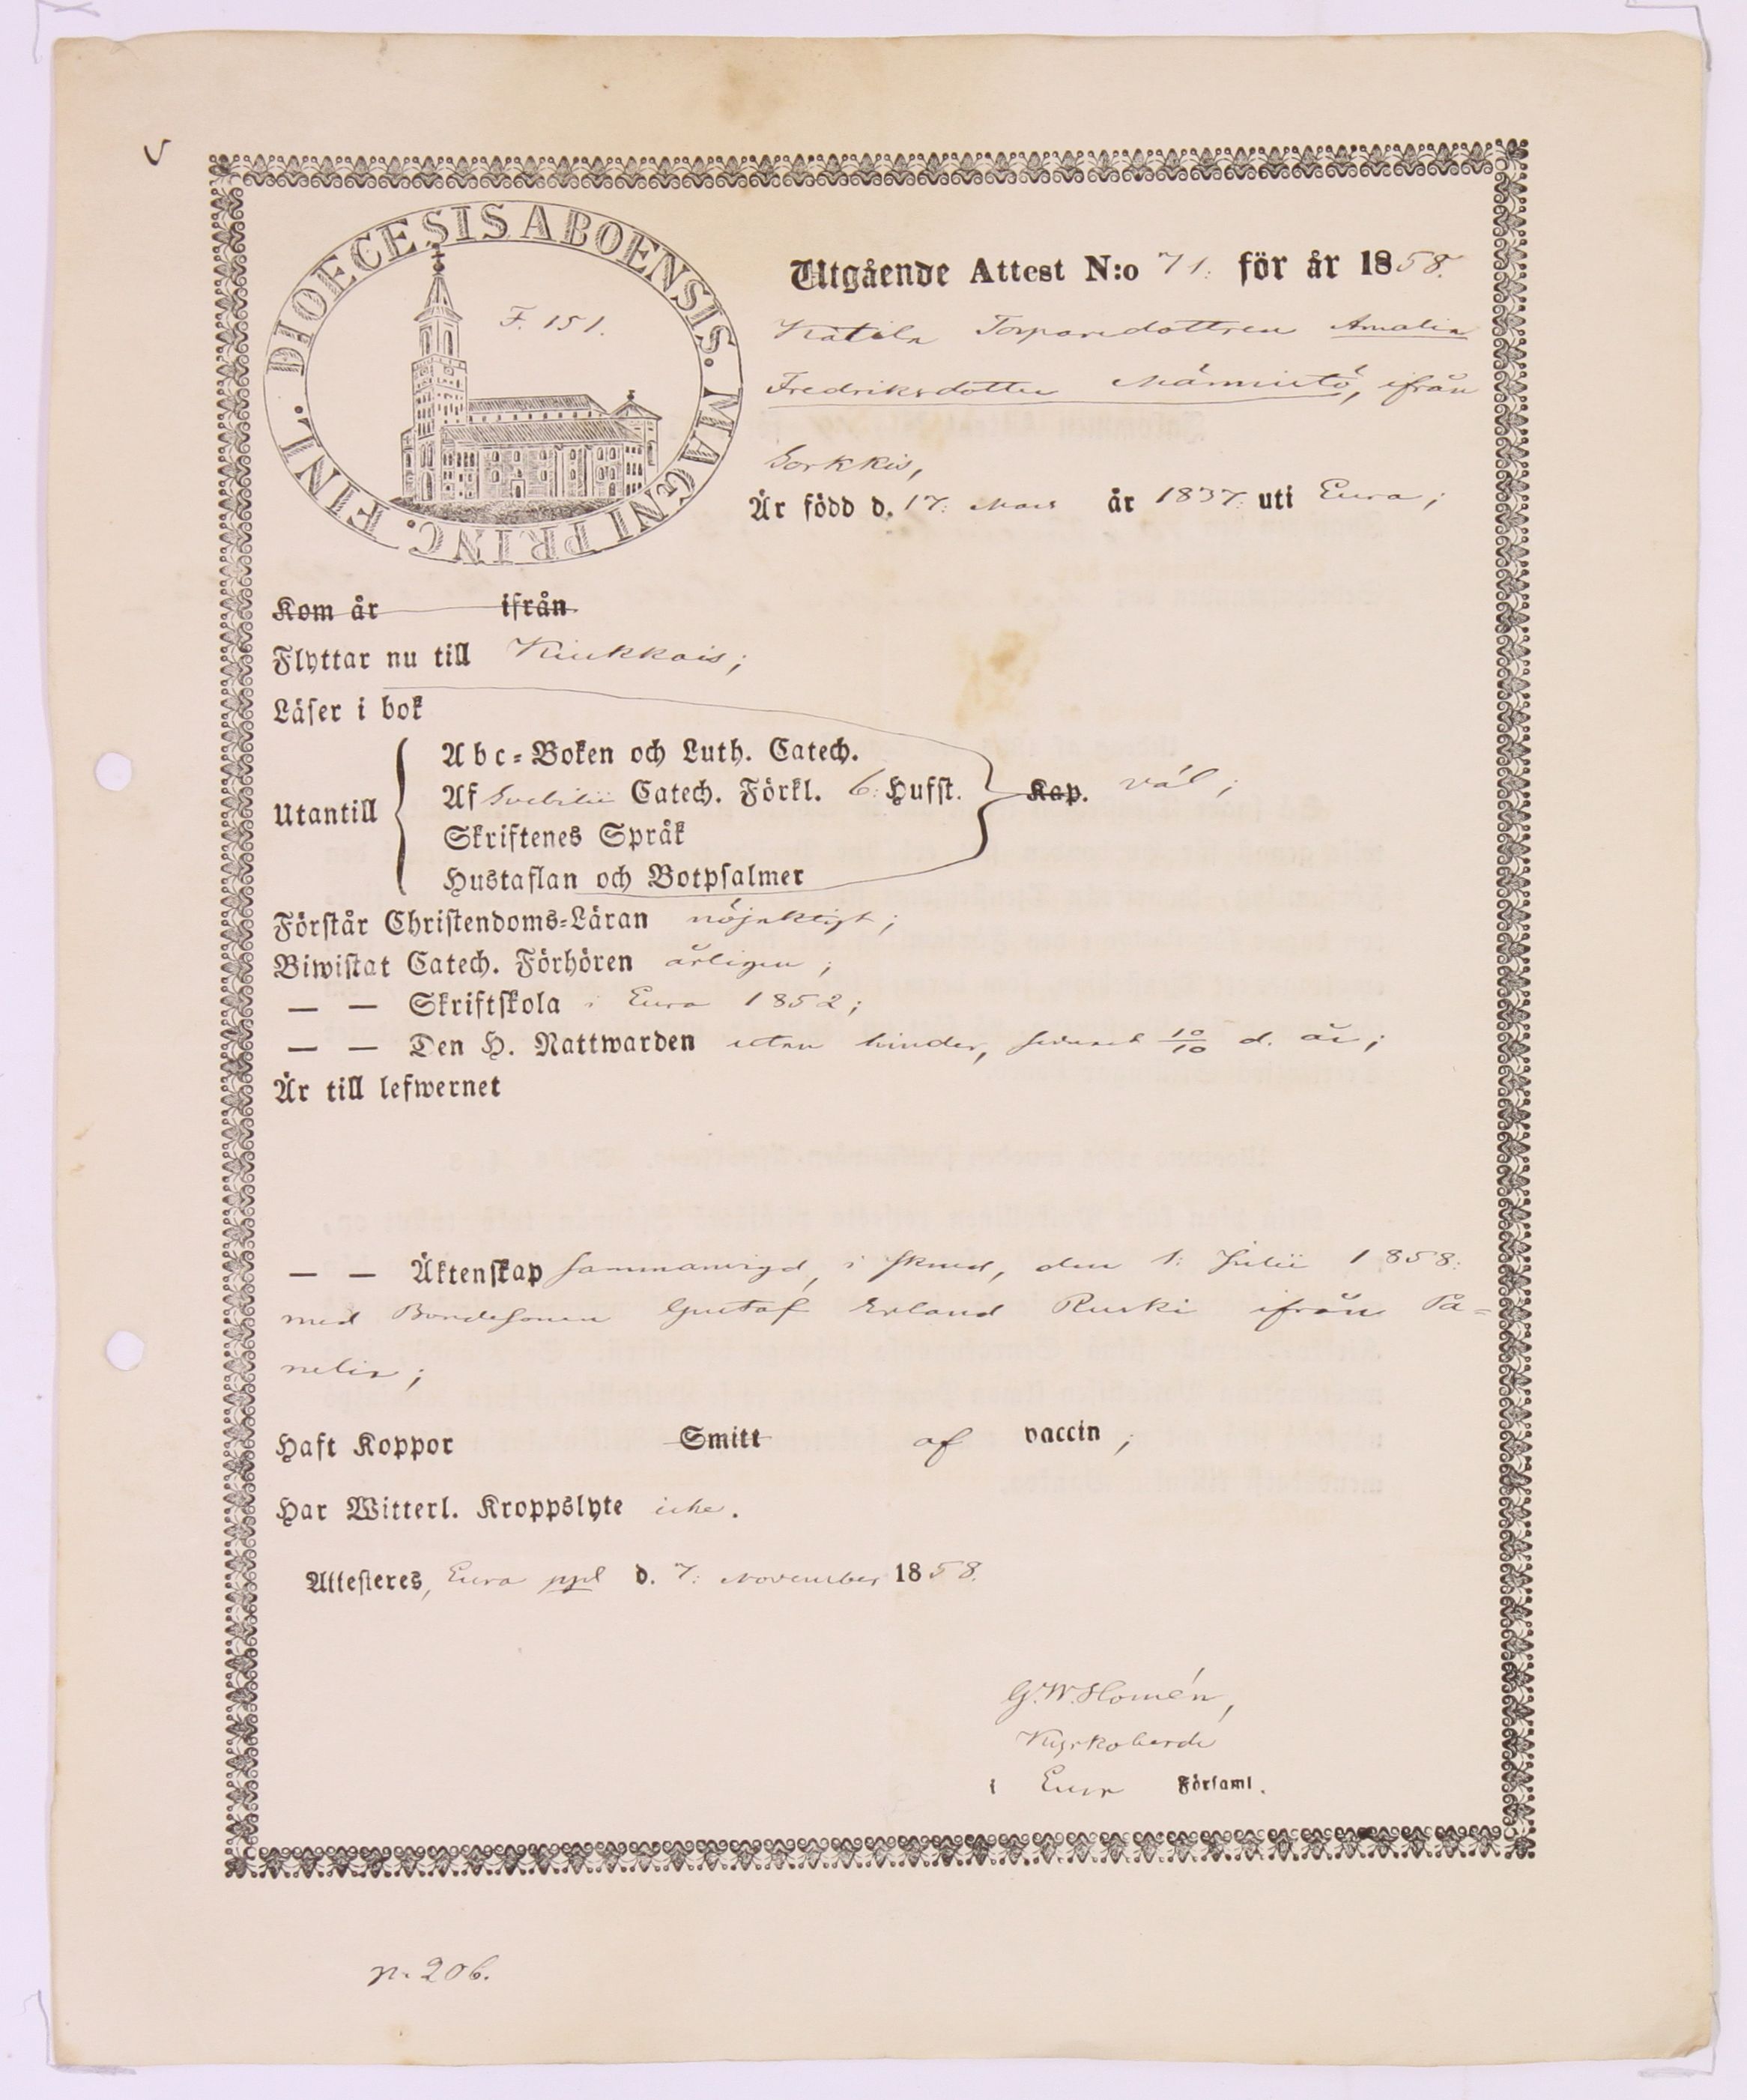 V
DIOECESIS ABOENSIS. MAGNI PRINC. FINL.
F. 151.
Utgående Attest N:o 71. för år 1858.
Katila Torparedottren Amalia
Fredriksdotter Männistö, ifrån
Sorkkis,
Är född d. 17: Mars år 1837. uti Eura;
Kom år ifrån
Flyttar nu till Kiukkais;
Läser i bok
Abc-Boken och Luth. Catech.
Utantill Af Svebilii Catech. Förkl. 6: Hufst. Kap. väl;
Skriftenes Språk
Hustaflan och Botpsalmer
Förstår Christendoms-Läran nöjaktigt;
Biwistat Catech. Förhören årligen;
— — Skriftskola i Eura 1852;
— — Den H. Nattwarden utan hinder, senast 10/10 d. år;
Är till lefwernet
— — Äktenskap sammanvigd, i sknd, den 1: Julii 1858:
med Bondesonen Gustaf Erland Ruski ifrån Pa=
nelia;
Haft Koppor Smitt af vaccin;
Har Witterl. Kroppslyte icke.
Attesteres, Eura ppl d. 7: November 1858.
G. W. Homén,
Kyrkoherde
i Eura Församl.
p. 206.